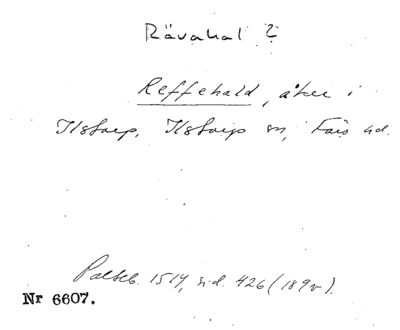 Rävahal ?
Reffehald, åker i
Ilstorp, Ilstorps sn, Färs hd.
Palteb. 1514, sid. 426 (189v).
Nr 6607.